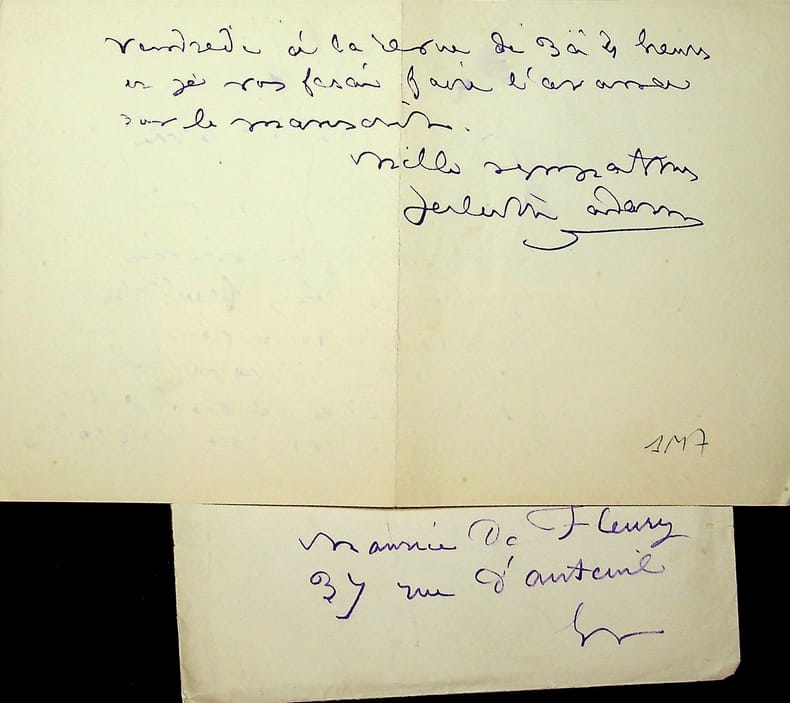 Vendredi à la revue de 3 à 4 heures
et je vous ferai faire l'avance
sur le manuscrit.
Mille sympathies
Juliette Adam
1M7
Maurice De Fleury
37 rue d'auteuil